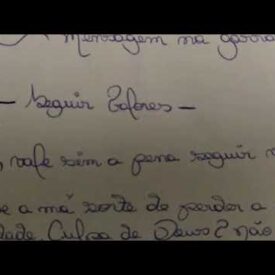 Mensagem na garrafa
— Seguir Valores —
vale sim a pena seguir
e a má sorte de perder a
dade. Culpa de Deus? não